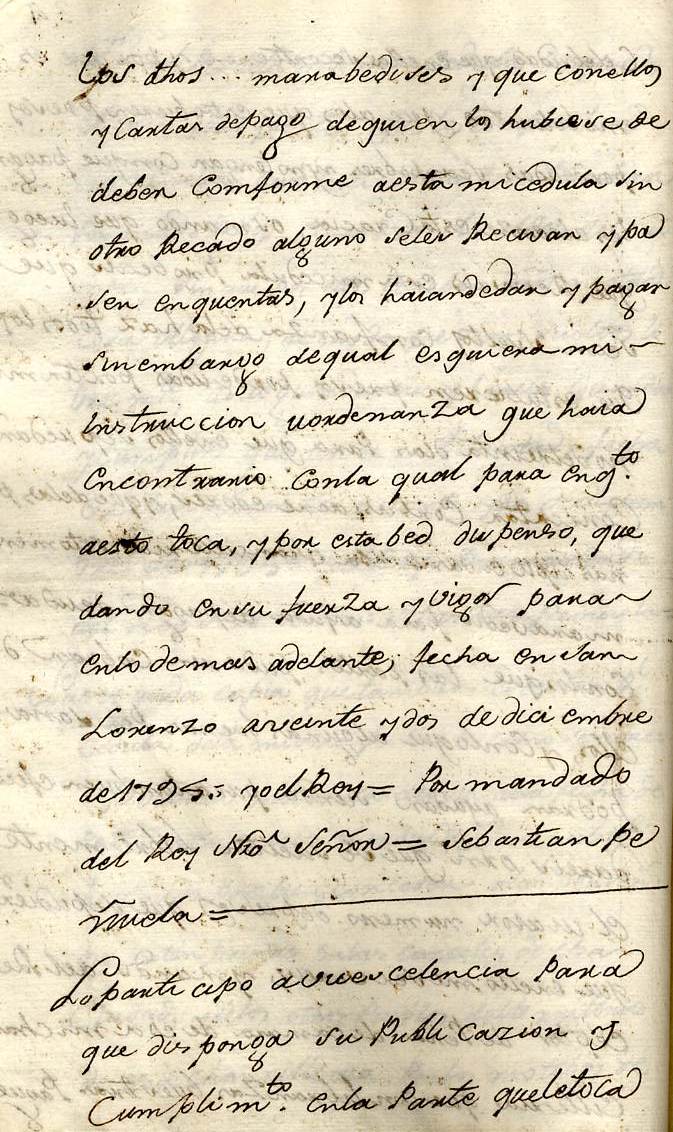 los dhos... marabedises y que conellos
y Cartas depago dequien los hubiese de
deber Comforme aesta micedula sin
otro Recado alguno seles Recivan ypa
sen enquentas, ylos haiandedar y pagar
sinembargo dequal esquiera mi
instruccion uordenanza que haia
encontrario Conla qual para engto.
aesto toca, y por estabed dispenso, que
dando ensu fuerza y vigor para
enlo demas adelante, fecha en San
Lorenzo aveinte ydos dediciembre
de 1795.= yo el Rey = Por mandado
del Rey Nro. Señor = Sebastian Pe
ñuela =
Lo participo avuexcelencia Para
que disponga su Publicazion y
Cumplimto. enla Parte queletoca